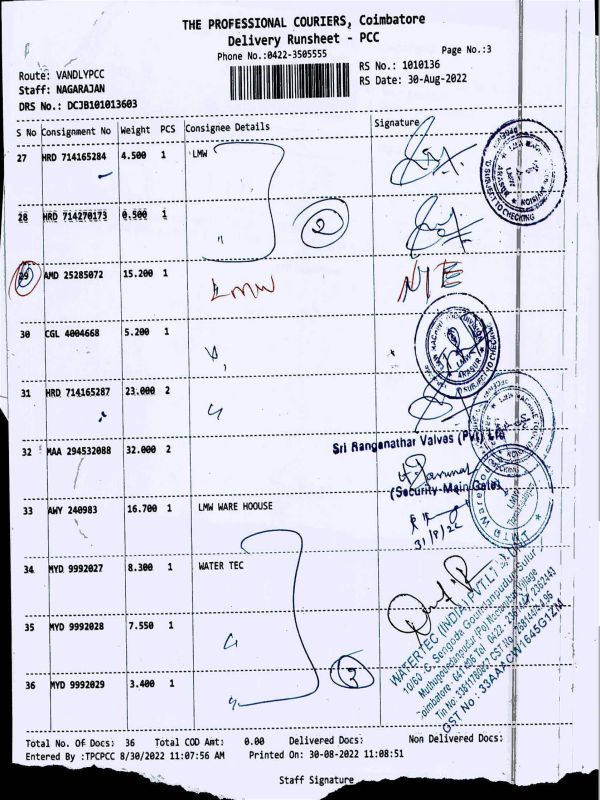 THE PROFESSIONAL COURIERS, Coimbatore
Delivery Runsheet - PCC
Phone No.:0422-3505555
Page No.:3
Route: VANDLYPCC
RS No.: 1010136
Staff: NAGARAJAN
RS Date: 30-Aug-2022
DRS No.: DCJB101013603
S No Consignment No Weight PCS Consignee Details Signature
27 HRD 714165284 4.500 1 LMW
28 HRD 714270173 0.500 1 "
2
29 AMD 25285072 15.200 1 LMW NYE
30 CGL 4004668 5.200 1
31 HRD 714165287 23.000 2
32 MAA 294532088 32.000 2
Sri Ranganathar Valves (Pvt) Ltd
(Security-Main Gate)
33 AWY 240983 16.700 1 LMW WARE HOOUSE
31/8/22
34 MYD 9992027 8.300 1 WATER TEC
35 MYD 9992028 7.550 1
36 MYD 9992029 3.400 1
3
WATERTEC (INDIA) PVT.LTD. UNIT
Total No. Of Docs: 36 Total COD Amt: 0.00 Delivered Docs: Non Delivered Docs:
Entered By :TPCPCC 8/30/2022 11:07:56 AM Printed On: 30-08-2022 11:08:51
Staff Signature